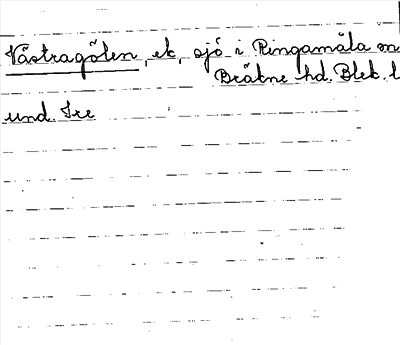 Västragölen, ek, sjö i Ringamåla sn
Bräkne hd. Blek. l
und. Ire